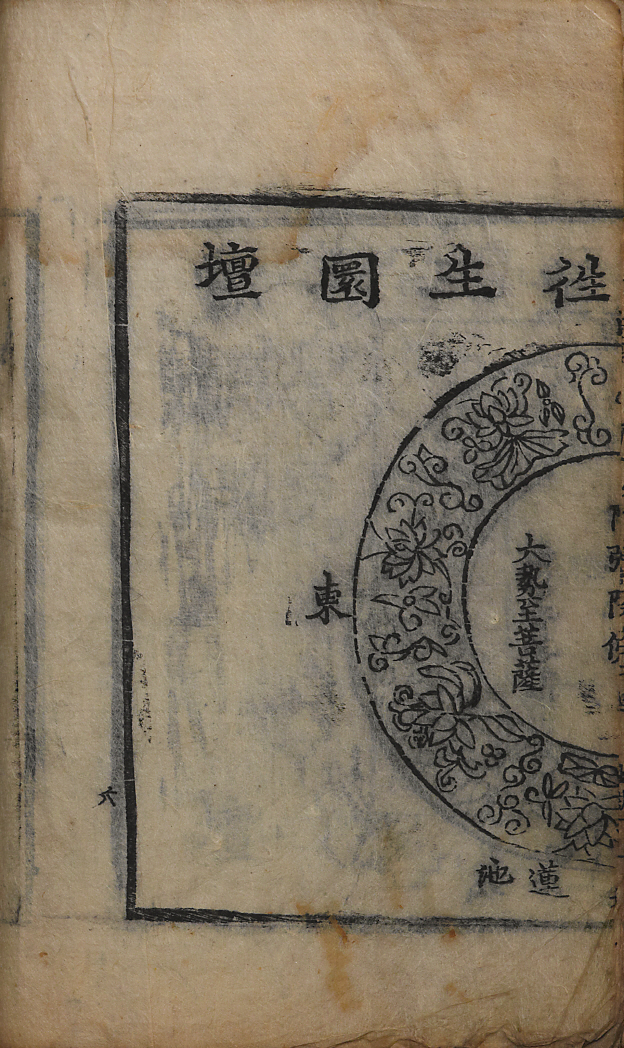 徃生圜壇
大勢至菩薩
東
蓮池
六